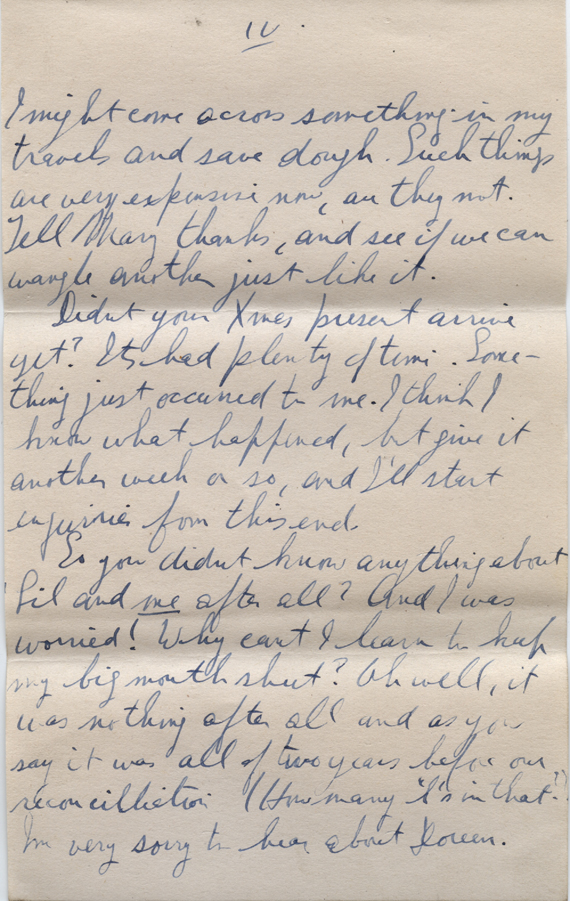 IV
I might come across something in my
travels and save dough. Such things
are very expensive now, are they not.
Tell Mary thanks, and see if we can
wangle another just like it.
Didnt your Xmas present arrive
yet? Its had plenty of time. Some-
thing just occurred to me. I think I
know what happened, but give it
another week or so, and I'll start
enquiries from this end.
So you didnt know anything about
Sil and me after all? And I was
worried! Why cant I learn to keep
my big mouth shut? Oh well, it
was nothing after all and as you
say it was all of two years before our
reconcilliction (How many "l's in that?)
Im very sorry to hear about Doreen.